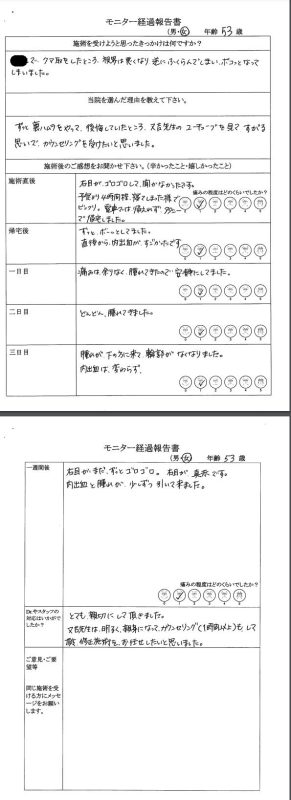 モニター経過報告書
(男・女) 年齢 53 歳
施術を受けようと思ったきっかけは何ですか？
で、クマ取をしたところ、視界は悪くなり逆にふくらんでしまい、ボコッとなって
しまいました。
当院を選んだ理由を教えて下さい。
ずっと裏ハムラをやって、後悔していたところ、先生のユーチューブを見て、すがる
思いで、カウンセリングを受けたいと思いました。
施術後のご感想をお聞かせ下さい。（辛かったこと・嬉しかったこと）
施術直後
右目が、ゴロゴロして、開かなかったです。
痛みの程度はどのくらいでしたか？
予定より4時間程、寝てしまった様で
ビックリ。電車では帰えれず、タクシー
で帰宅しました。
0 1 2 3 4 5
帰宅後
ずっと、ボーッとしてました。
直後から、内出血が、すごかったです
0 1 2 3 4 5
一日目
痛みは、余りなく、腫れてきたので、安静にしてました。
0 1 2 3 4 5
二日目
どんどん、腫れてきました。
0 1 2 3 4 5
三日目
腫れが下の方に来て、輪郭がなくなりました。
内出血は、変わらず、
0 1 2 3 4 5
モニター経過報告書
(男・女) 年齢 53 歳
一週間後
右目がまだ、ずっとゴロゴロ。右目が真赤です。
内出血と腫れが、少しずつ引いて来ました。
痛みの程度はどのくらいでしたか？
0 1 2 3 4 5
Drやスタッフの
対応はいかがで
したか？
とても、親切にして頂きました。
先生は、明るく、親身になって、カウンセリング（1時間以上）もして
頂、修正施術を、お任せしたいと思いました。
ご意見・ご要
望等
同じ施術を受
ける方にメッセ
ージをお願い
します。